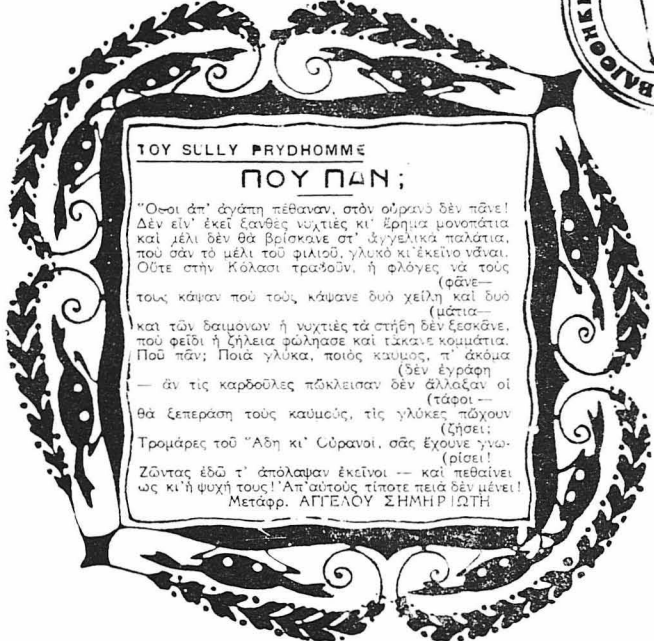 ΒΛΙΟΘΗΕ
ΤΟΥ SULLY PRYDHOMME
ΠΟΥ ΠΑΝ ;
Ὅσοι ἀπ' ἀγάπη πέθαναν, στὸν οὐρανὸ δὲν πᾶνε!
Δὲν εἶν' ἐκεῖ ξανθὲς νυχτιὲς κι' ἔρημα μονοπάτια
καὶ μέλι δὲν θὰ βρίσκανε στ' ἀγγελικὰ παλάτια,
ποὺ σὰν τὸ μέλι τοῦ φιλιοῦ, γλυκὸ κι' ἐκεῖνο νἆναι.
Οὔτε στὴν Κόλασι τραβοῦν, ἡ φλόγες νὰ τοὺς
(φᾶνε—
τους κάψαν ποὺ τοὺς κάψανε δυὸ χείλη καὶ δυὸ
(μάτια—
καὶ τῶν δαιμόνων ἡ νυχτιὲς τὰ στήθη δὲν ξεσκᾶνε,
ποὺ φεῖδι ἡ ζήλεια φώλησε καὶ τἄκανε κομμάτια.
Ποῦ πᾶν; Ποιὰ γλύκα, ποιὸς καϋμος, π' ἀκόμα
(δὲν ἐγράφη
— ἂν τὶς καρδοῦλες πὤκλεισαν δὲν ἄλλαξαν οἱ
(τάφοι —
θὰ ξεπεράση τοὺς καϋμούς, τὶς γλύκες πὤχουν
(ζήσει;
Τρομάρες τοῦ Ἅδη κι' Οὐρανοί, σᾶς ἔχουνε γνω-
(ρίσει!
Ζῶντας ἐδῶ τ' ἀπόλαψαν ἐκεῖνοι — καὶ πεθαίνει
ως κι' ἡ ψυχή τους! Ἀπ' αὐτοὺς τίποτε πειὰ δὲν μένει!
Μετάφρ. ΑΓΓΕΛΟΥ ΣΗΜΗΡΙΩΤΗ